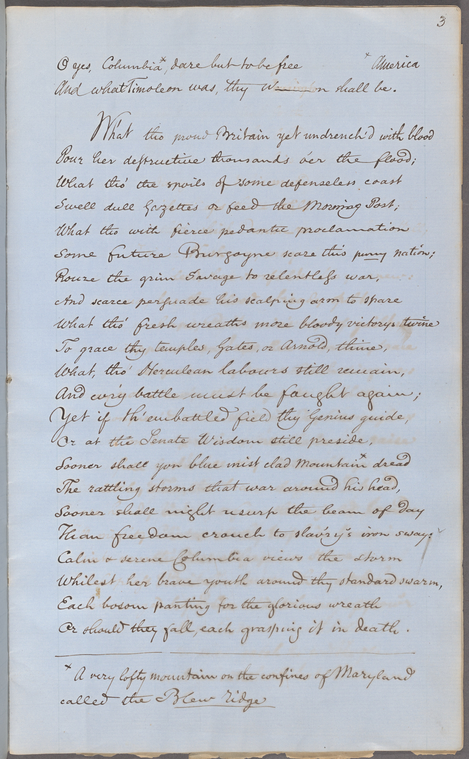 3
O yes, Columbia*, dare but to be free * America
And what Timoleon was, thy W------n shall be.
What tho proud Britain yet undrench'd with blood
Pour her destructive thousands o'er the flood;
What tho' the spoils of some defenseless coast
Swell dull Gazettes or feed the Morning Post;
What tho with fierce pedantic proclamation
Some future Burgoyne scare this puny nation;
Rouze the grim Savage to relentless war,
And scarce persuade his scalping arm to spare
What tho' fresh wreaths more bloody victorys twine
To grace thy temples, Gates, or Arnold, thine,
What, tho' Herculean labours still remain,
And ev'ry battle must be faught again;
Yet if th' embattled field thy Genius guide,
Or at the Senate Wisdom still preside
Sooner shall yon blue mist clad Mountain* dread
The rattling storms that war around his head,
Sooner shall night usurp the beam of day
Than freedom crouch to slav'ry's iron sway:
Calm & serene Columbia views the storm
Whilest her brave youth around thy standard swarm,
Each bosom panting for the glorious wreath
Or should they fall, each grasping it in death.
* A very lofty mountain on the confines of Maryland
called the Blew Ridge